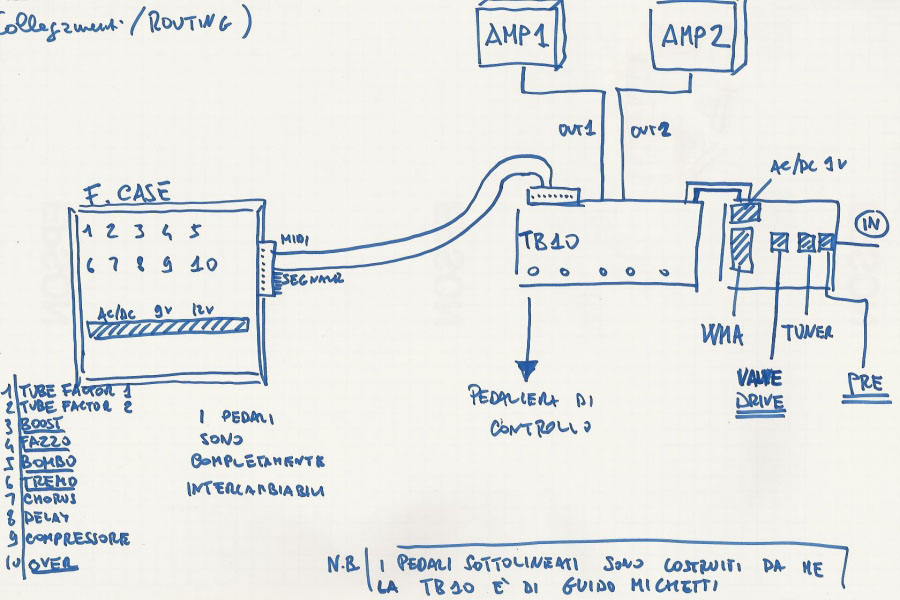 Collegamenti (ROUTING)
AMP1
AMP2
OUT1
OUT2
AC/DC 9V
F. CASE
1 2 3 4 5
6 7 8 9 10
AC/DC 9V 12V
MIDI
SEGNALE
TB10
IN
WHA
TUNER
VALVE
DRIVE
PRE
PEDALIERA DI
CONTROLLO
1 TUBE FACTOR 1
2 TUBE FACTOR 2
3 BOOST
4 FAZZO
5 BOMBO
6 TREMO
7 CHORUS
8 DELAY
9 COMPRESSORE
10 OVER
I PEDALI
SONO
COMPLETAMENTE
INTERCAMBIABILI
N.B. I PEDALI SOTTOLINEATI SONO COSTRUITI DA ME
LA TB10 E' DI GUIDO MICHETTI